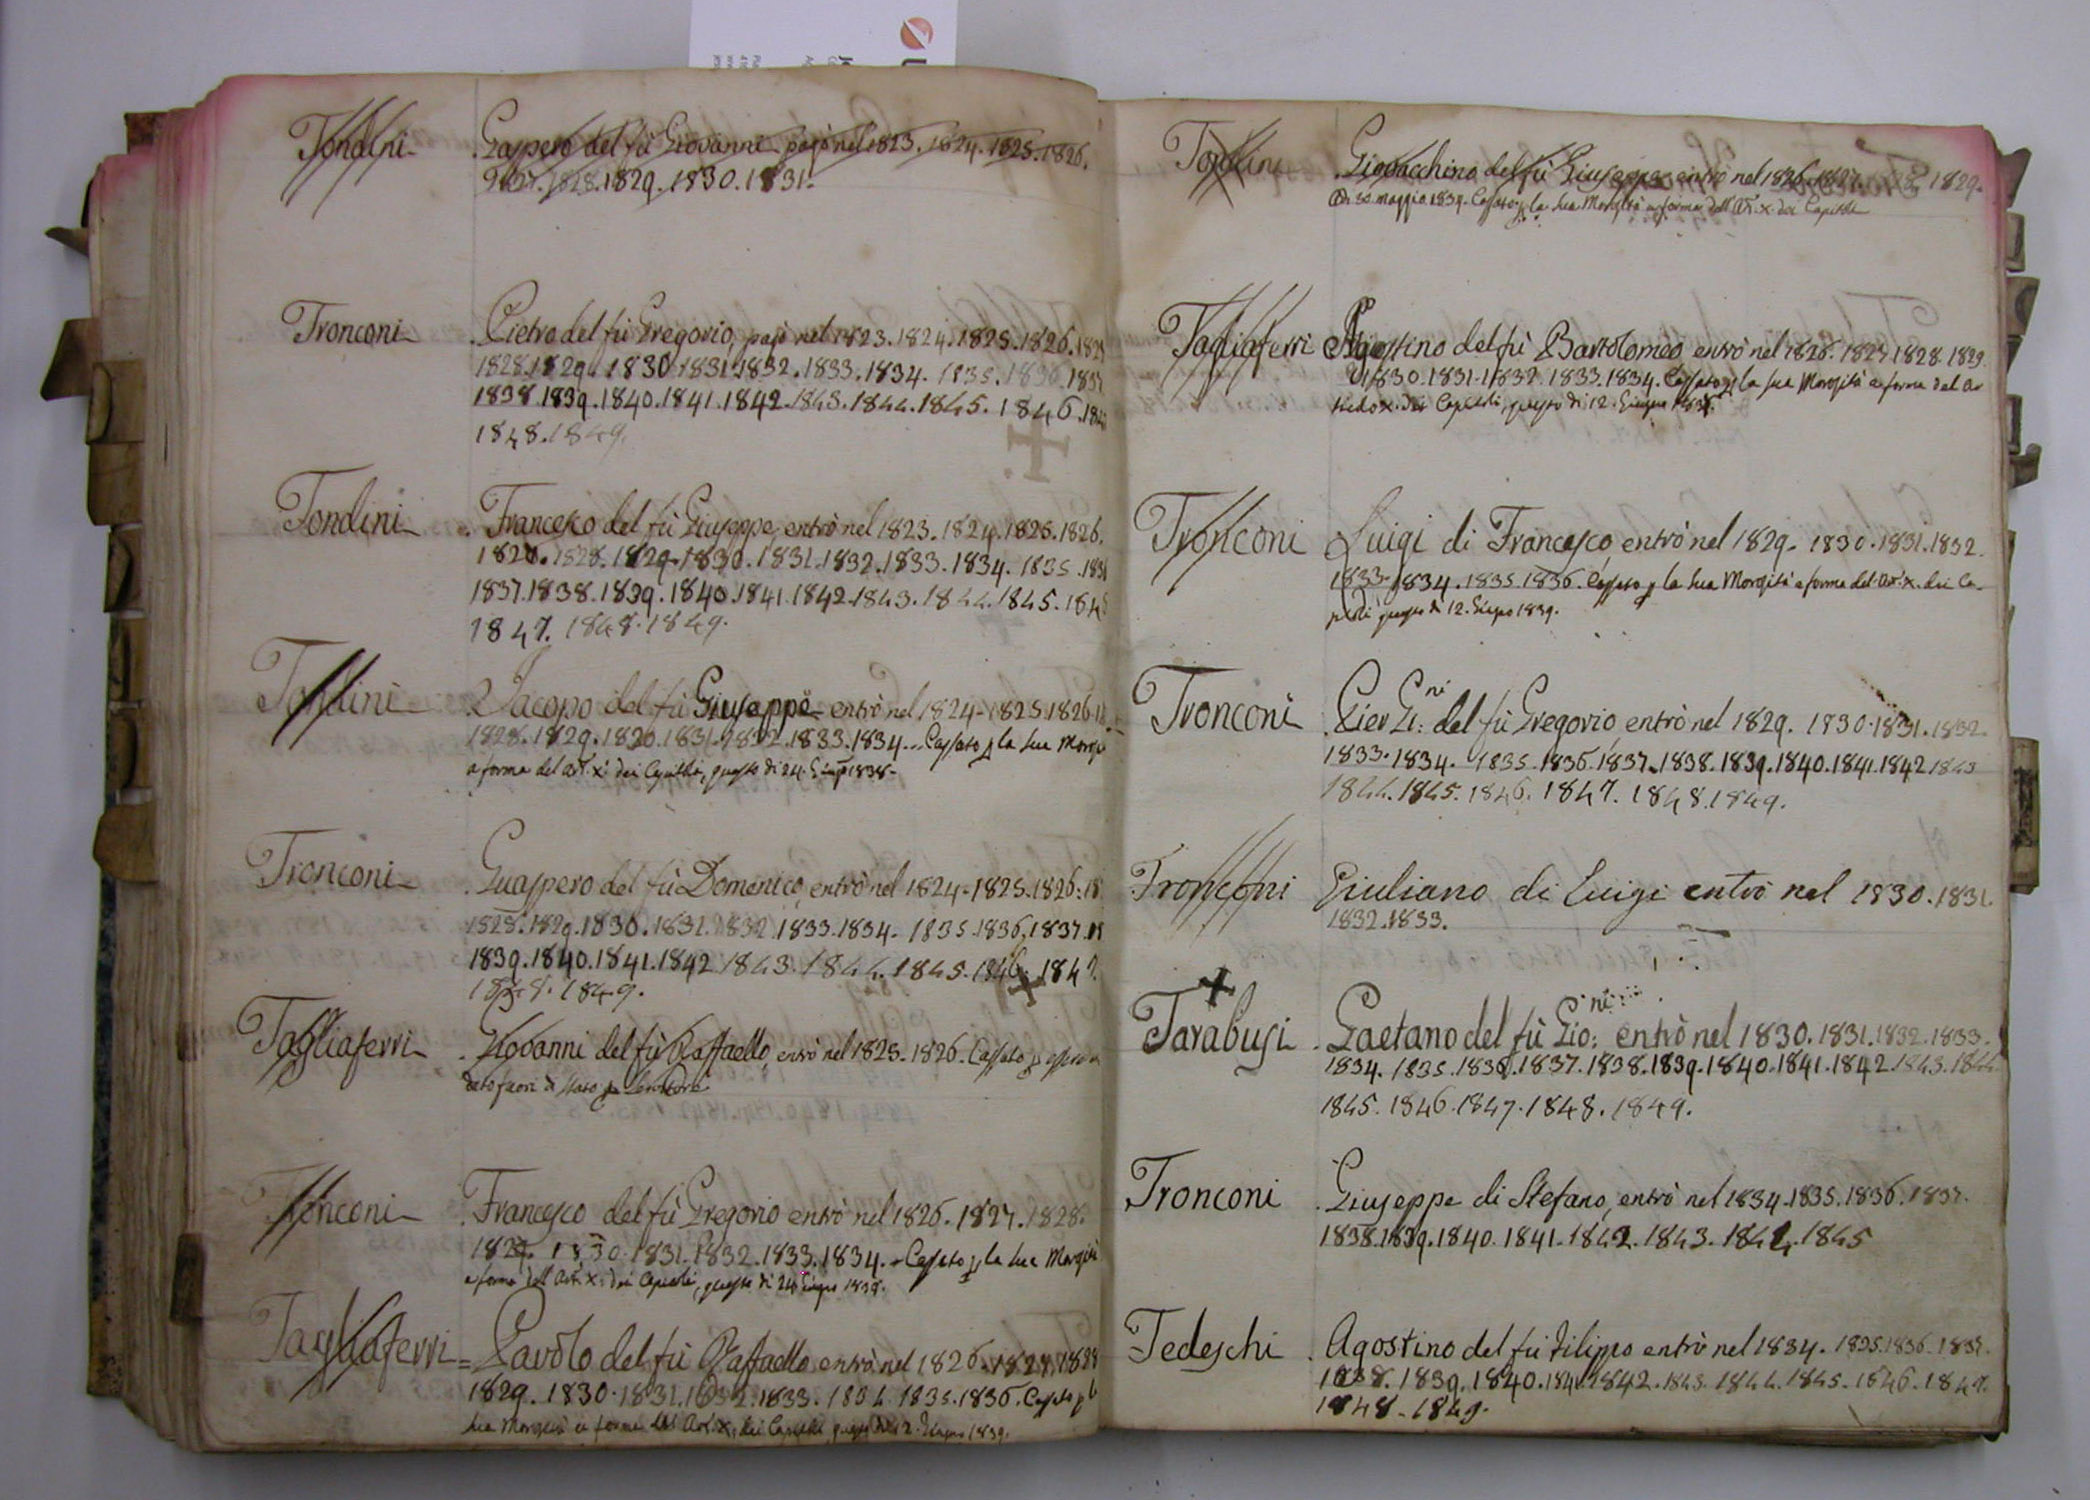 Tondini Gaspero del fù Giovanni pagò nel 1823. 1824. 1825. 1826.
1827. 1828. 1829. 1830. 1831.
Tronconi Pietro del fù Gregorio, pagò nel 1823. 1824. 1825. 1826. 1827
1828. 1829. 1830. 1831. 1832. 1833. 1834. 1835. 1836. 1837
1838. 1839. 1840. 1841. 1842. 1843. 1844. 1845. 1846.
1848. 1849.
Tondini Francesco del fù Giuseppe entrò nel 1823. 1824. 1825. 1826.
1827. 1828. 1829. 1830. 1831. 1832. 1833. 1834. 1835.
1837. 1838. 1839. 1840. 1841. 1842. 1843. 1844. 1845.
1847. 1848. 1849.
Tondini Jacopo del fù Giuseppe entrò nel 1824. 1825. 1826.
1828. 1829. 1830. 1831. 1832. 1833. 1834. Cassato p la sua
a forma del Art. X. dei Capitoli, questo dì 24.
Tronconi Guaspero del fù Domenico, entrò nel 1824. 1825. 1826.
1828. 1829. 1830. 1831. 1832. 1833. 1834. 1835. 1836. 1837.
1839. 1840. 1841. 1842. 1843. 1844. 1845. 1846. 1847.
1848. 1849.
Tagliaferri Giovanni del fù Raffaello, entrò nel 1825. 1826. Cassato p
fuori di Stato
Tronconi Francesco del fù Gregorio entrò nel 1826. 1827. 1828.
1829. 1830. 1831. 1832. 1833. 1834. Cassato p la sua Morosità
a forma dell'Art. X. dei Capitoli, questo dì 24 Giugno
Tagliaferri = Pavolo del fù Raffaello entrò nel 1826. 1827. 1828
1829. 1830. 1831. 1832. 1833. 1834. 1835. 1836. Cassato p la
sua Morosità a forma del Art. X. dei Capitoli questo dì 12. Giugno 1839.
Tondini Giovacchino del fù Giuseppe entrò nel 1826. 1827. 1828. 1829.
Maggio 1839. Cassato p la sua Morosità a forma dell'Art. X. dei Capitoli
Tagliaferri Agostino del fù Bartolomeo entrò nel 1826. 1827. 1828. 1829
1830. 1831. 1832. 1833. 1834. Cassato p la sua Morosità a forma del Ar
ticolo X. dei Capitoli, questo dì 12. Giugno
Tronconi Luigi di Francesco entrò nel 1829. 1830. 1831. 1832.
1833. 1834. 1835. 1836. Cassato p la sua Morosità a forma del Art. X. dei Ca
pitoli questo dì 12. Giugno 1839.
Tronconi Pier G:ni del fù Gregorio entrò nel 1829. 1830. 1831. 1832.
1833. 1834. 1835. 1836. 1837. 1838. 1839. 1840. 1841. 1842 1843
1844. 1845. 1846. 1847. 1848. 1849.
Tronconi Giuliano di Luigi entrò nel 1830. 1831.
1832. 1833.
Tarabusi Gaetano del fù Gio:ni entrò nel 1830. 1831. 1832. 1833.
1834. 1835. 1836. 1837. 1838. 1839. 1840. 1841. 1842. 1843. 1844.
1845. 1846. 1847. 1848. 1849.
Tronconi Giuseppe di Stefano, entrò nel 1834. 1835. 1836. 1837.
1838. 1839. 1840. 1841. 1842. 1843. 1844. 1845
Tedeschi Agostino del fù Filippo entrò nel 1834. 1835. 1836. 1837.
1838. 1839. 1840. 1841. 1842. 1843. 1844. 1845. 1846. 1847.
1848. 1849.